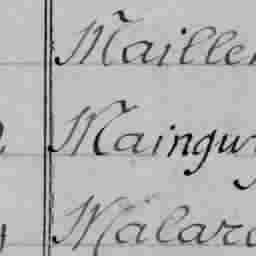 Mailler
Mainguy
Malard